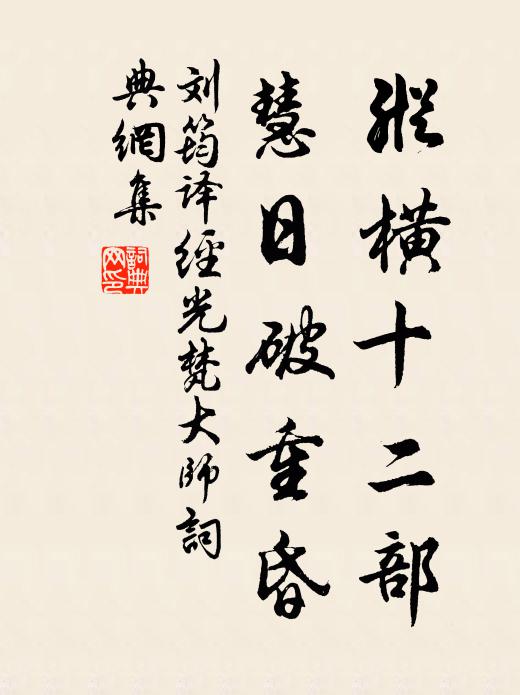 縱橫十二部
慧日破重昏
刘筠译經光梵大師詞
典網集
詞典
网印